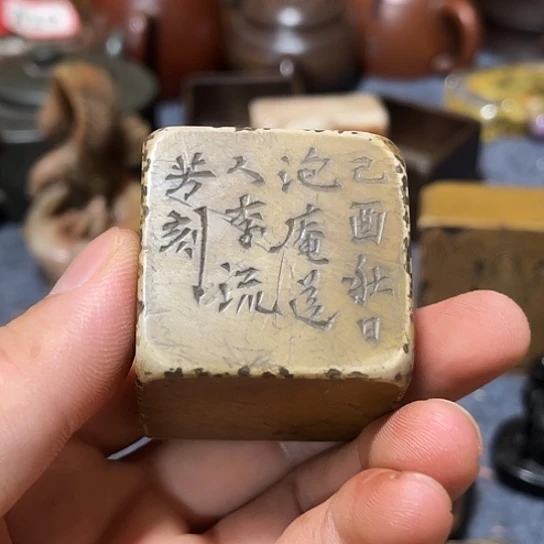 己酉秋日
泡庵道
人李流
芳刻